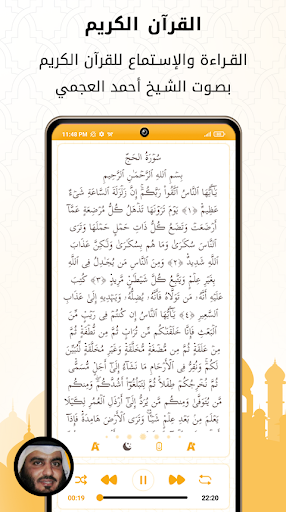 القرآن الكريم
القراءة والإستماع للقرآن الكريم
بصوت الشيخ أحمد العجمي
11:48 PM
سُورَةُ الحَجِّ
بِسْمِ اللَّهِ الرَّحْمَٰنِ الرَّحِيمِ
يَٰٓأَيُّهَا النَّاسُ اتَّقُوا رَبَّكُمْ إِنَّ زَلْزَلَةَ السَّاعَةِ شَيْءٌ
عَظِيمٌ ﴿١﴾ يَوْمَ تَرَوْنَهَا تَذْهَلُ كُلُّ مُرْضِعَةٍ عَمَّآ
أَرْضَعَتْ وَتَضَعُ كُلُّ ذَاتِ حَمْلٍ حَمْلَهَا وَتَرَى
النَّاسَ سُكَٰرَىٰ وَمَا هُم بِسُكَٰرَىٰ وَلَٰكِنَّ عَذَابَ
اللَّهِ شَدِيدٌ ﴿٢﴾ وَمِنَ النَّاسِ مَن يُجَٰدِلُ فِي اللَّهِ
بِغَيْرِ عِلْمٍ وَيَتَّبِعُ كُلَّ شَيْطَٰنٍ مَّرِيدٍ ﴿٣﴾ كُتِبَ
عَلَيْهِ أَنَّهُۥ مَن تَوَلَّاهُ فَأَنَّهُۥ يُضِلُّهُۥ وَيَهْدِيهِ إِلَىٰ عَذَابِ
السَّعِيرِ ﴿٤﴾ يَٰٓأَيُّهَا النَّاسُ إِن كُنتُمْ فِي رَيْبٍ مِّنَ
الْبَعْثِ فَإِنَّا خَلَقْنَٰكُم مِّن تُرَابٍ ثُمَّ مِن نُّطْفَةٍ ثُمَّ
مِنْ عَلَقَةٍ ثُمَّ مِن مُّضْغَةٍ مُّخَلَّقَةٍ وَغَيْرِ مُخَلَّقَةٍ لِّنُبَيِّنَ
لَكُمْ وَنُقِرُّ فِي الْأَرْحَامِ مَا نَشَآءُ إِلَىٰٓ أَجَلٍ مُّسَمًّى
ثُمَّ نُخْرِجُكُمْ طِفْلًا ثُمَّ لِتَبْلُغُوٓا أَشُدَّكُمْ وَمِنكُم
مَّن يُتَوَفَّىٰ وَمِنكُم مَّن يُرَدُّ إِلَىٰٓ أَرْذَلِ الْعُمُرِ لِكَيْلَا
يَعْلَمَ مِن بَعْدِ عِلْمٍ شَيْـًٔا وَتَرَى الْأَرْضَ هَامِدَةً فَإِذَآ
00:19
22:20